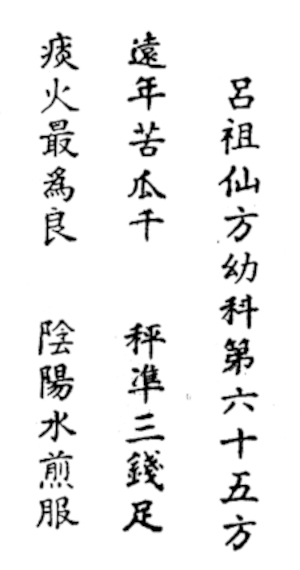 呂祖仙方幼科第六十五方
遠年苦瓜千 秤準三錢足
痰火最為良 陰陽水煎服